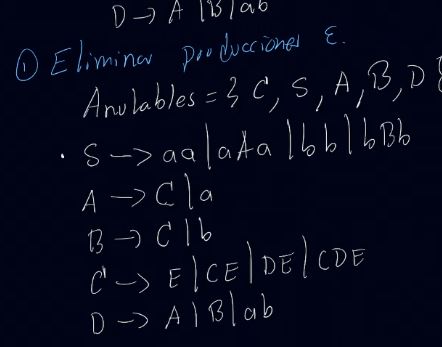 D → A | B | ab
① Eliminar producciones ε.
Anulables = { C, S, A, B, D }
S → aa | aAa | bb | bBb
A → C | a
B → C | b
C → E | CE | DE | CDE
D → A | B | ab